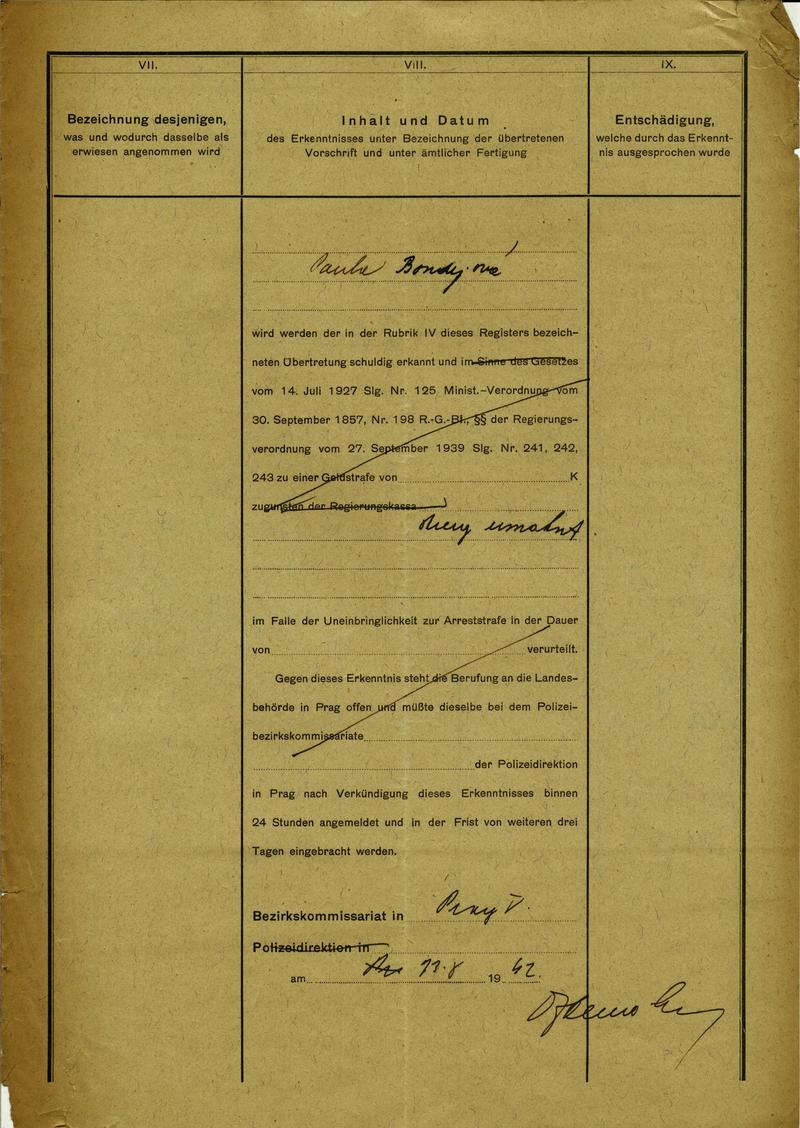 VII.
VIII.
IX.
Bezeichnung desjenigen,
was und wodurch dasselbe als
erwiesen angenommen wird
Inhalt und Datum
des Erkenntnisses unter Bezeichnung der übertretenen
Vorschrift und unter ämtlicher Fertigung
Entschädigung,
welche durch das Erkennt-
nis ausgesprochen wurde
Bondy-ová
wird werden der in der Rubrik IV dieses Registers bezeich-
neten Übertretung schuldig erkannt und im Sinne des Gesetzes
vom 14. Juli 1927 Slg. Nr. 125 Minist.-Verordnung vom
30. September 1857, Nr. 198 R.-G.-Bl., §§ der Regierungs-
verordnung vom 27. September 1939 Slg. Nr. 241, 242,
243 zu einer Geldstrafe von K
zugunsten der Regierungskassa
im Falle der Uneinbringlichkeit zur Arreststrafe in der Dauer
von verurteilt.
Gegen dieses Erkenntnis steht die Berufung an die Landes-
behörde in Prag offen und müßte dieselbe bei dem Polizei-
bezirkskommissariate
der Polizeidirektion
in Prag nach Verkündigung dieses Erkenntnisses binnen
24 Stunden angemeldet und in der Frist von weiteren drei
Tagen eingebracht werden.
Bezirkskommissariat in Prag V.
Polizeidirektion in
am 11.8 1942.